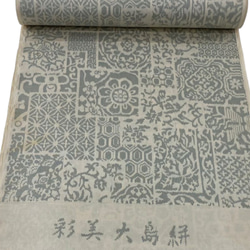 彩美大島絣